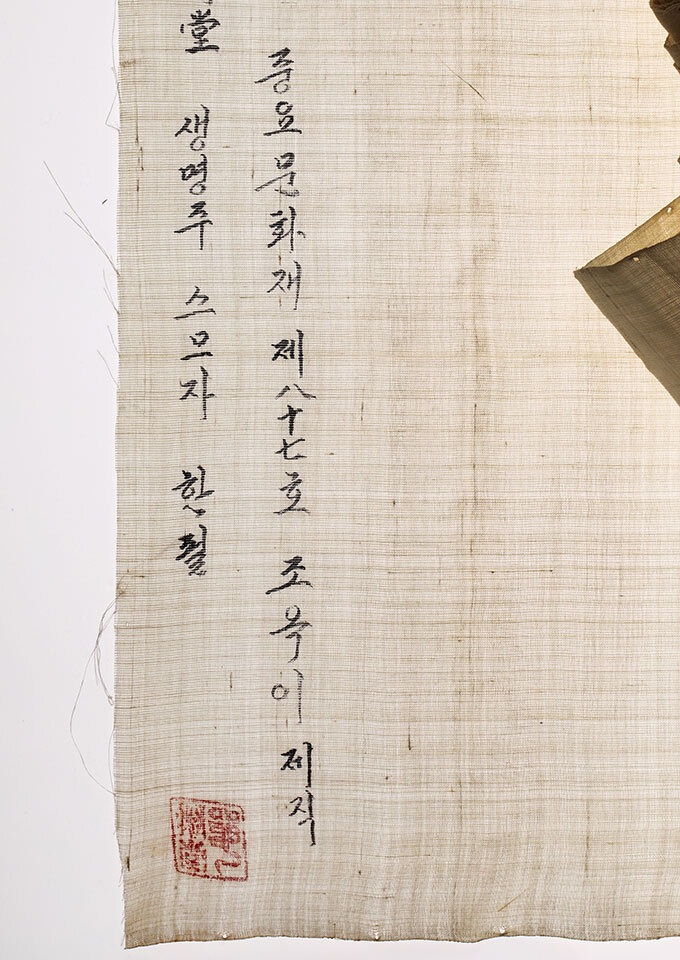 중요문화재 제八十七호 조옥이 제직
堂 생명주 스므자 한필